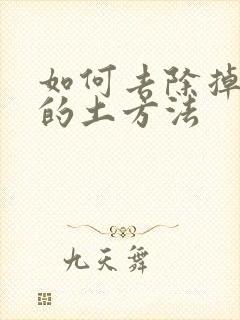 如何去除掉
的土方法
九天舞